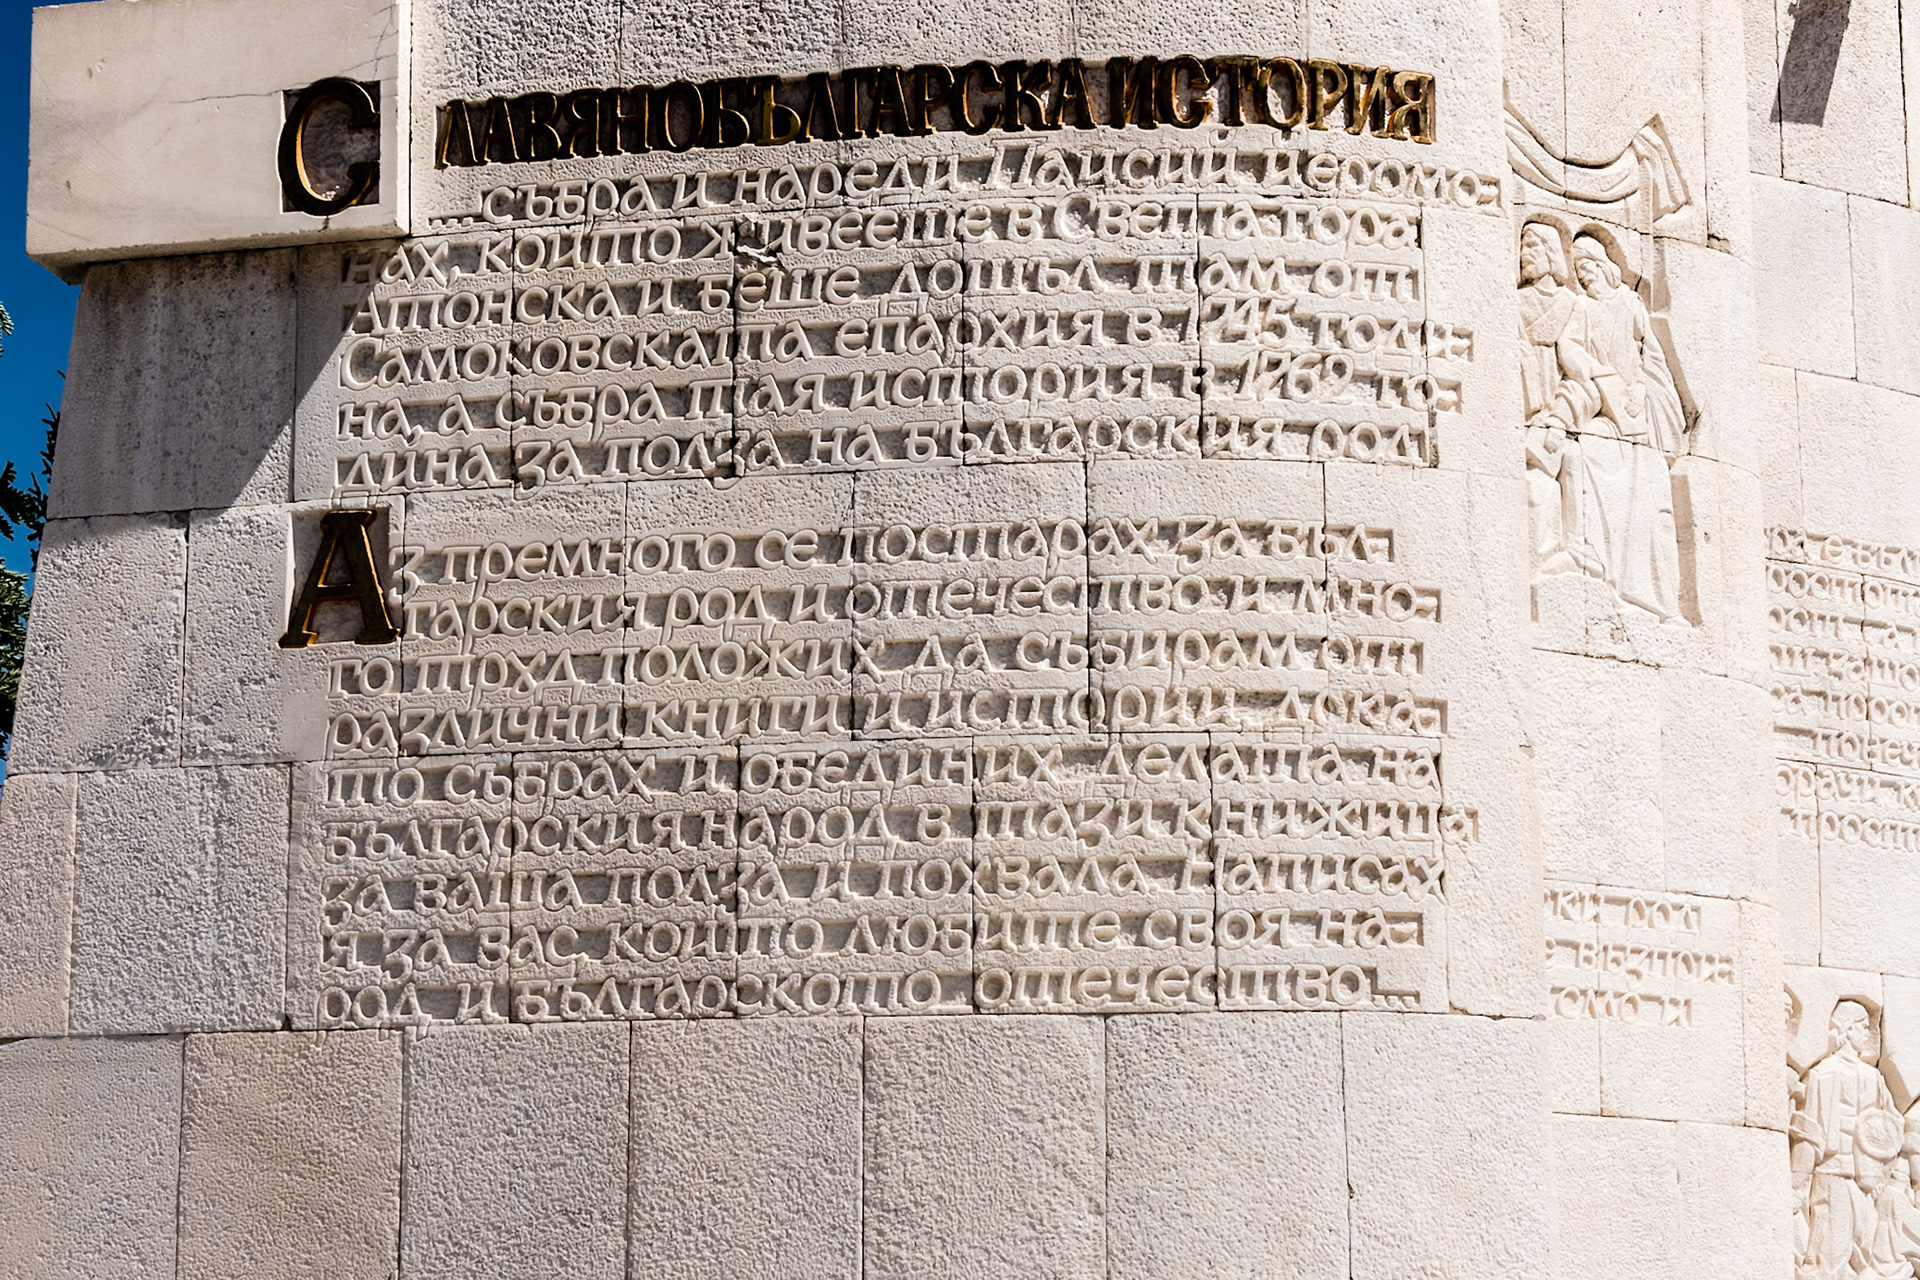 СЛАВЯНОБЪЛГАРСКА ИСТОРИЯ
...събра и нареди Паисий йеромо-
нах, който живееше в Света гора
Атонска и беше дошъл там от
Самоковската епархия в 1745 годи-
на, а събра тая история в 1762 го-
дина за полза на българския род
Аз премного се постарах за бъл-
гарския род и отечество и мно-
го труд положих да събирам от
различни книги и истории, дока-
то събрах и обединих делата на
българския народ в тази книжица
за ваша полза и похвала. Написах
я за вас, които любите своя на-
род и българското отечество...
ки род
в безпои-